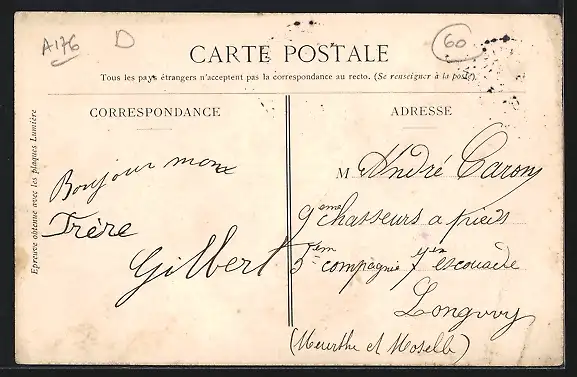 A176
D
60
CARTE POSTALE
Tous les pays étrangers n'acceptent pas la correspondance au recto. (Se renseigner à la poste).
CORRESPONDANCE
ADRESSE
Epreuve obtenue avec les plaques Lumière
Bonjour mon
Frère
Gilbert
M André Caron
9eme chasseurs a pieds
5em compagnie 7em escouade
Longwy
(Meurthe et Moselle)